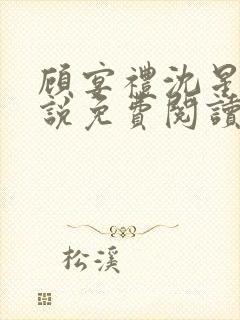 顾宴禮沈星
説免費閱讀
松溪